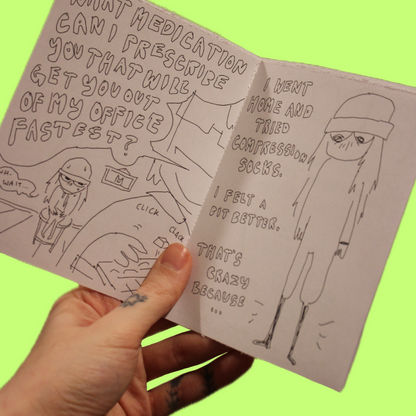 WHAT MEDICATION
CAN I PRESCRIBE
YOU THAT WILL
GET YOU OUT
OF MY OFFICE
FASTEST?
WAIT...
CLICK
CLICK
I WENT
HOME AND
TRIED
COMPRESSION
SOCKS.
I FELT A
BIT BETTER.
THAT'S
CRAZY
BECAUSE
...